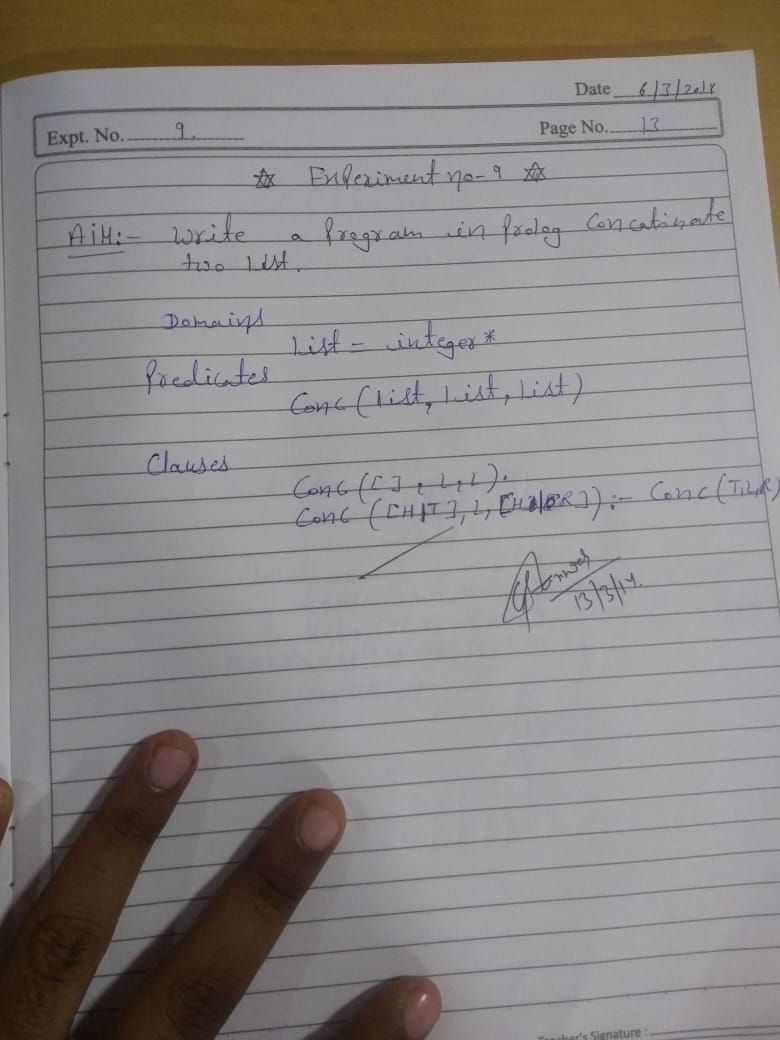 Date 6/3/2014
Expt. No. 9.
Page No. 13
Experiment no-9
AiM:- Write a Program in prolog Concatinate
two list.
Domains
List = integer*
Predicates
Conc (list, list, list)
Clauses
Conc ([ ], L, L).
Conc ([H|T], L, [H|R]) :- Conc (T,L,R)
13/3/14.
Teacher's Signature :